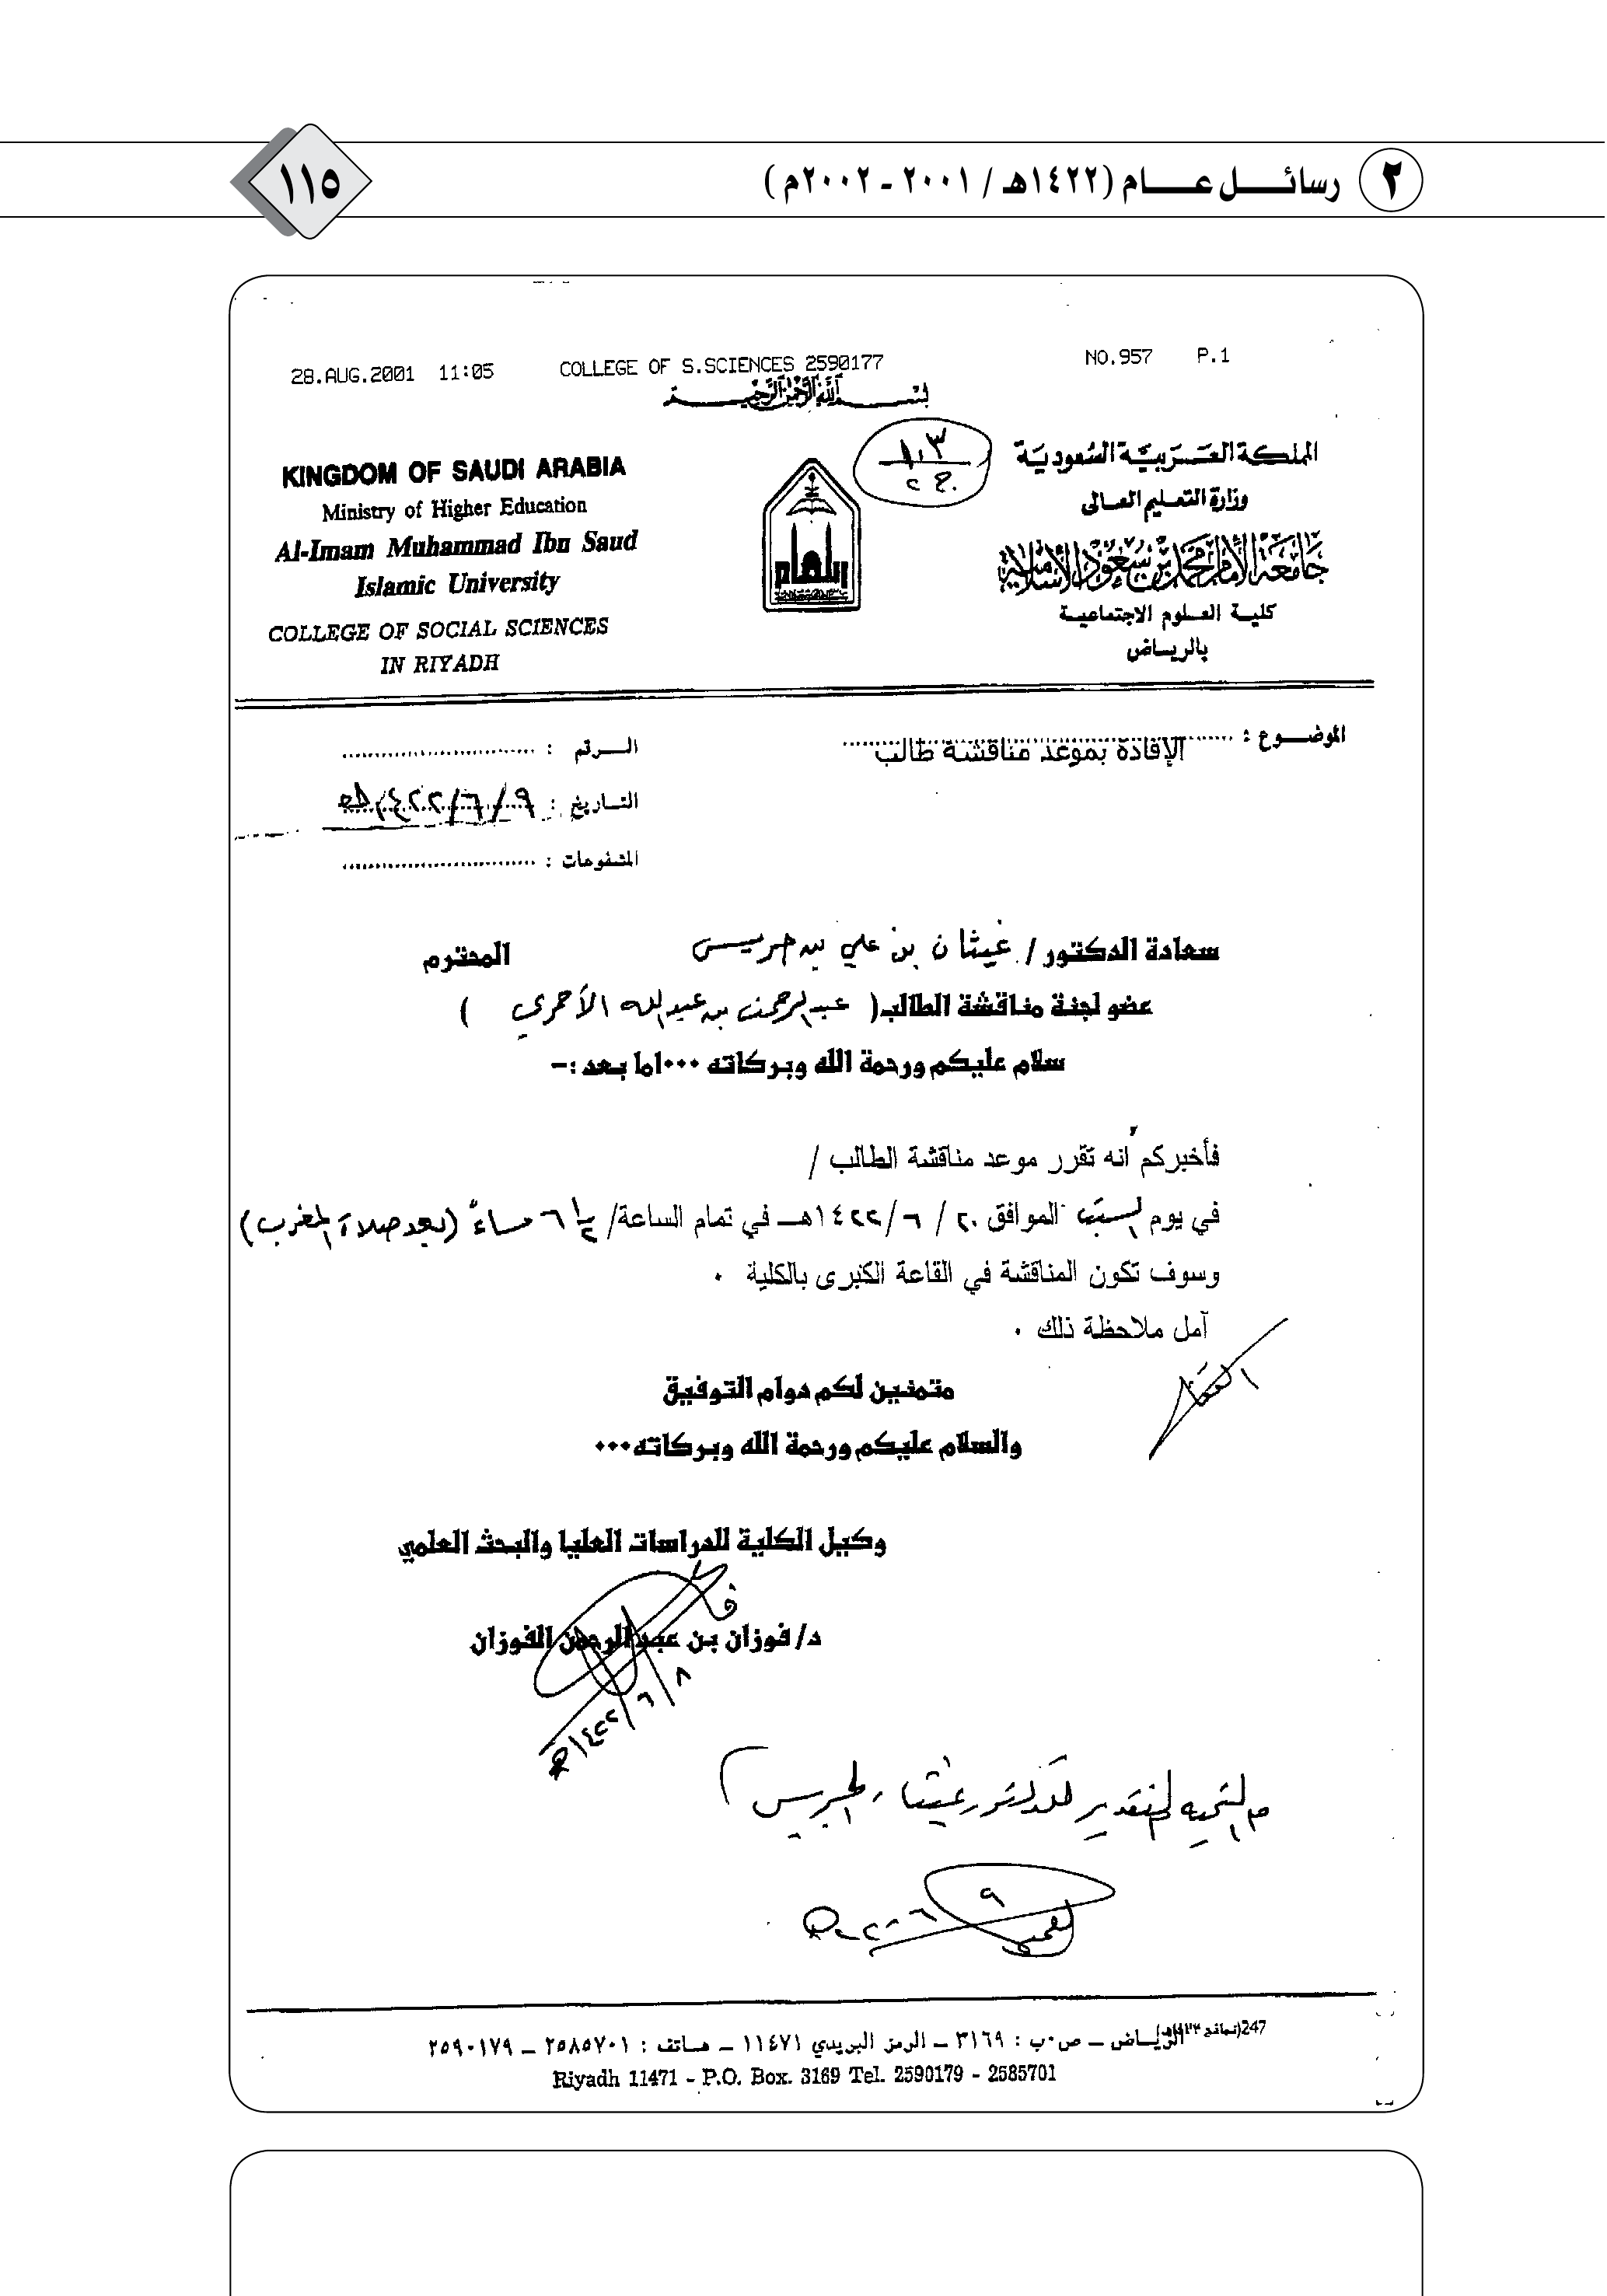 ٢ رسائل عام (١٤٢٢هـ / ٢٠٠١ - ٢٠٠٢م)
١١٥
28.AUG.2001 11:05 COLLEGE OF S.SCIENCES 2590177 NO.957 P.1
بسم الله الرحمن الرحيم
المملكة العربية السعودية
وزارة التعليم العالى
جامعة الإمام محمد بن سعود الإسلامية
كلية العلوم الاجتماعية
بالرياض
١٠٣
KINGDOM OF SAUDI ARABIA
Ministry of Higher Education
Al-Imam Muhammad Ibn Saud
Islamic University
COLLEGE OF SOCIAL SCIENCES
IN RIYADH
الموضوع : الإفادة بموعد مناقشة طالب
الرقم :
التاريخ : ٩/٦/١٤٢٢هـ
المشفوعات :
سعادة الدكتور / غيثان بن علي بن جريس المحترم
عضو لجنة مناقشة الطالب( عبدالرحمن بن عبدالله الأحمري )
سلام عليكم ورحمة الله وبركاته ٠٠٠اما بعد :-
فأخبركم أنه تقرر موعد مناقشة الطالب /
في يوم السبت الموافق ٢٠ / ٦ /١٤٢٢هـ في تمام الساعة/ ٦ ١/٢ مساءً (بعد صلاة المغرب)
وسوف تكون المناقشة في القاعة الكبرى بالكلية ٠
آمل ملاحظة ذلك ٠
متمنين لكم دوام التوفيق
والسلام عليكم ورحمة الله وبركاته٠٠٠
وكيل الكلية للدراسات العليا والبحث العلمي
د/ فوزان بن عبد الرحمن الفوزان
٨/٦/١٤٢٢هـ
مع التحية والتقدير للدكتور غيثان الجريس
247
الرياض – ص٠ب : ٣١٦٩ – الرمز البريدي ١١٤٧١ – هاتف : ٢٥٨٥٧٠١ – ٢٥٩٠١٧٩
Riyadh 11471 - P.O. Box. 3169 Tel. 2590179 - 2585701